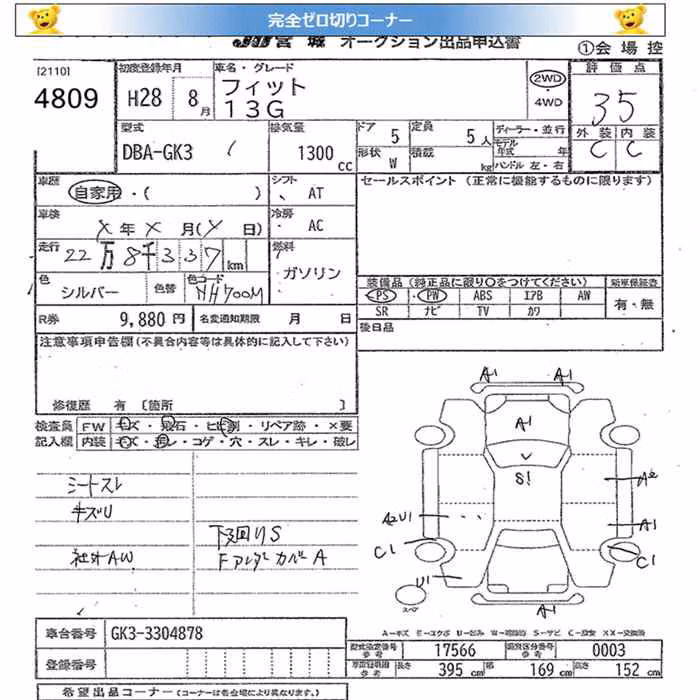 完全ゼロ切りコーナー
JU宮城 オークション出品申込書 ①会場控
[2110] 初度登録年月 車名・グレード 評価点
4809 H28 8月 フィット 13G 2WD・4WD 35
外装 内装
C C
型式 排気量 ドア 5 定員 5人 ディーラー・並行
DBA-GK3 1300cc 形状 W 積載 kg モデル年式 年 ハンドル 左・右
車歴 自家用・( ) シフト AT セールスポイント (正常に機能するものに限ります)
車検 X年X月(X日) 冷房 AC
走行 22万8千337km 燃料 ガソリン
色 シルバー 色替 色コード NH700M
装備品 (純正品に限り○をつけてください) 新車保証書
PS PW ABS エアB AW 有・無
SR ナビ TV カワ
R券 9,880円 名変通知期限 月 日 後日品
注意事項申告欄(不具合内容等は具体的に記入して下さい)
修復歴 有 [箇所 ]
検査員 FW キズ・飛石・ヒビ割・リペア跡・×要
記入欄 内装 キズ・汚レ・コゲ・穴・スレ・キレ・破レ
シートスレ
キズU
下回りS
社外AW Fアンダーカバー A
A1 A1
A1
S1
A2
A2 U1
A1
C1
C1
U1
スペア
A1
車台番号 GK3-3304878
A-キズ E-エクボ U-凹み W-補修跡 S-サビ C-腐食 XX-交換跡
型式指定番号 参考 17566 類別区分番号 参考 0003
登録番号
車両諸規格 参考 長さ 395cm 幅 169cm 高さ 152cm
希望出品コーナー(コーナーは各会場により異なります。)